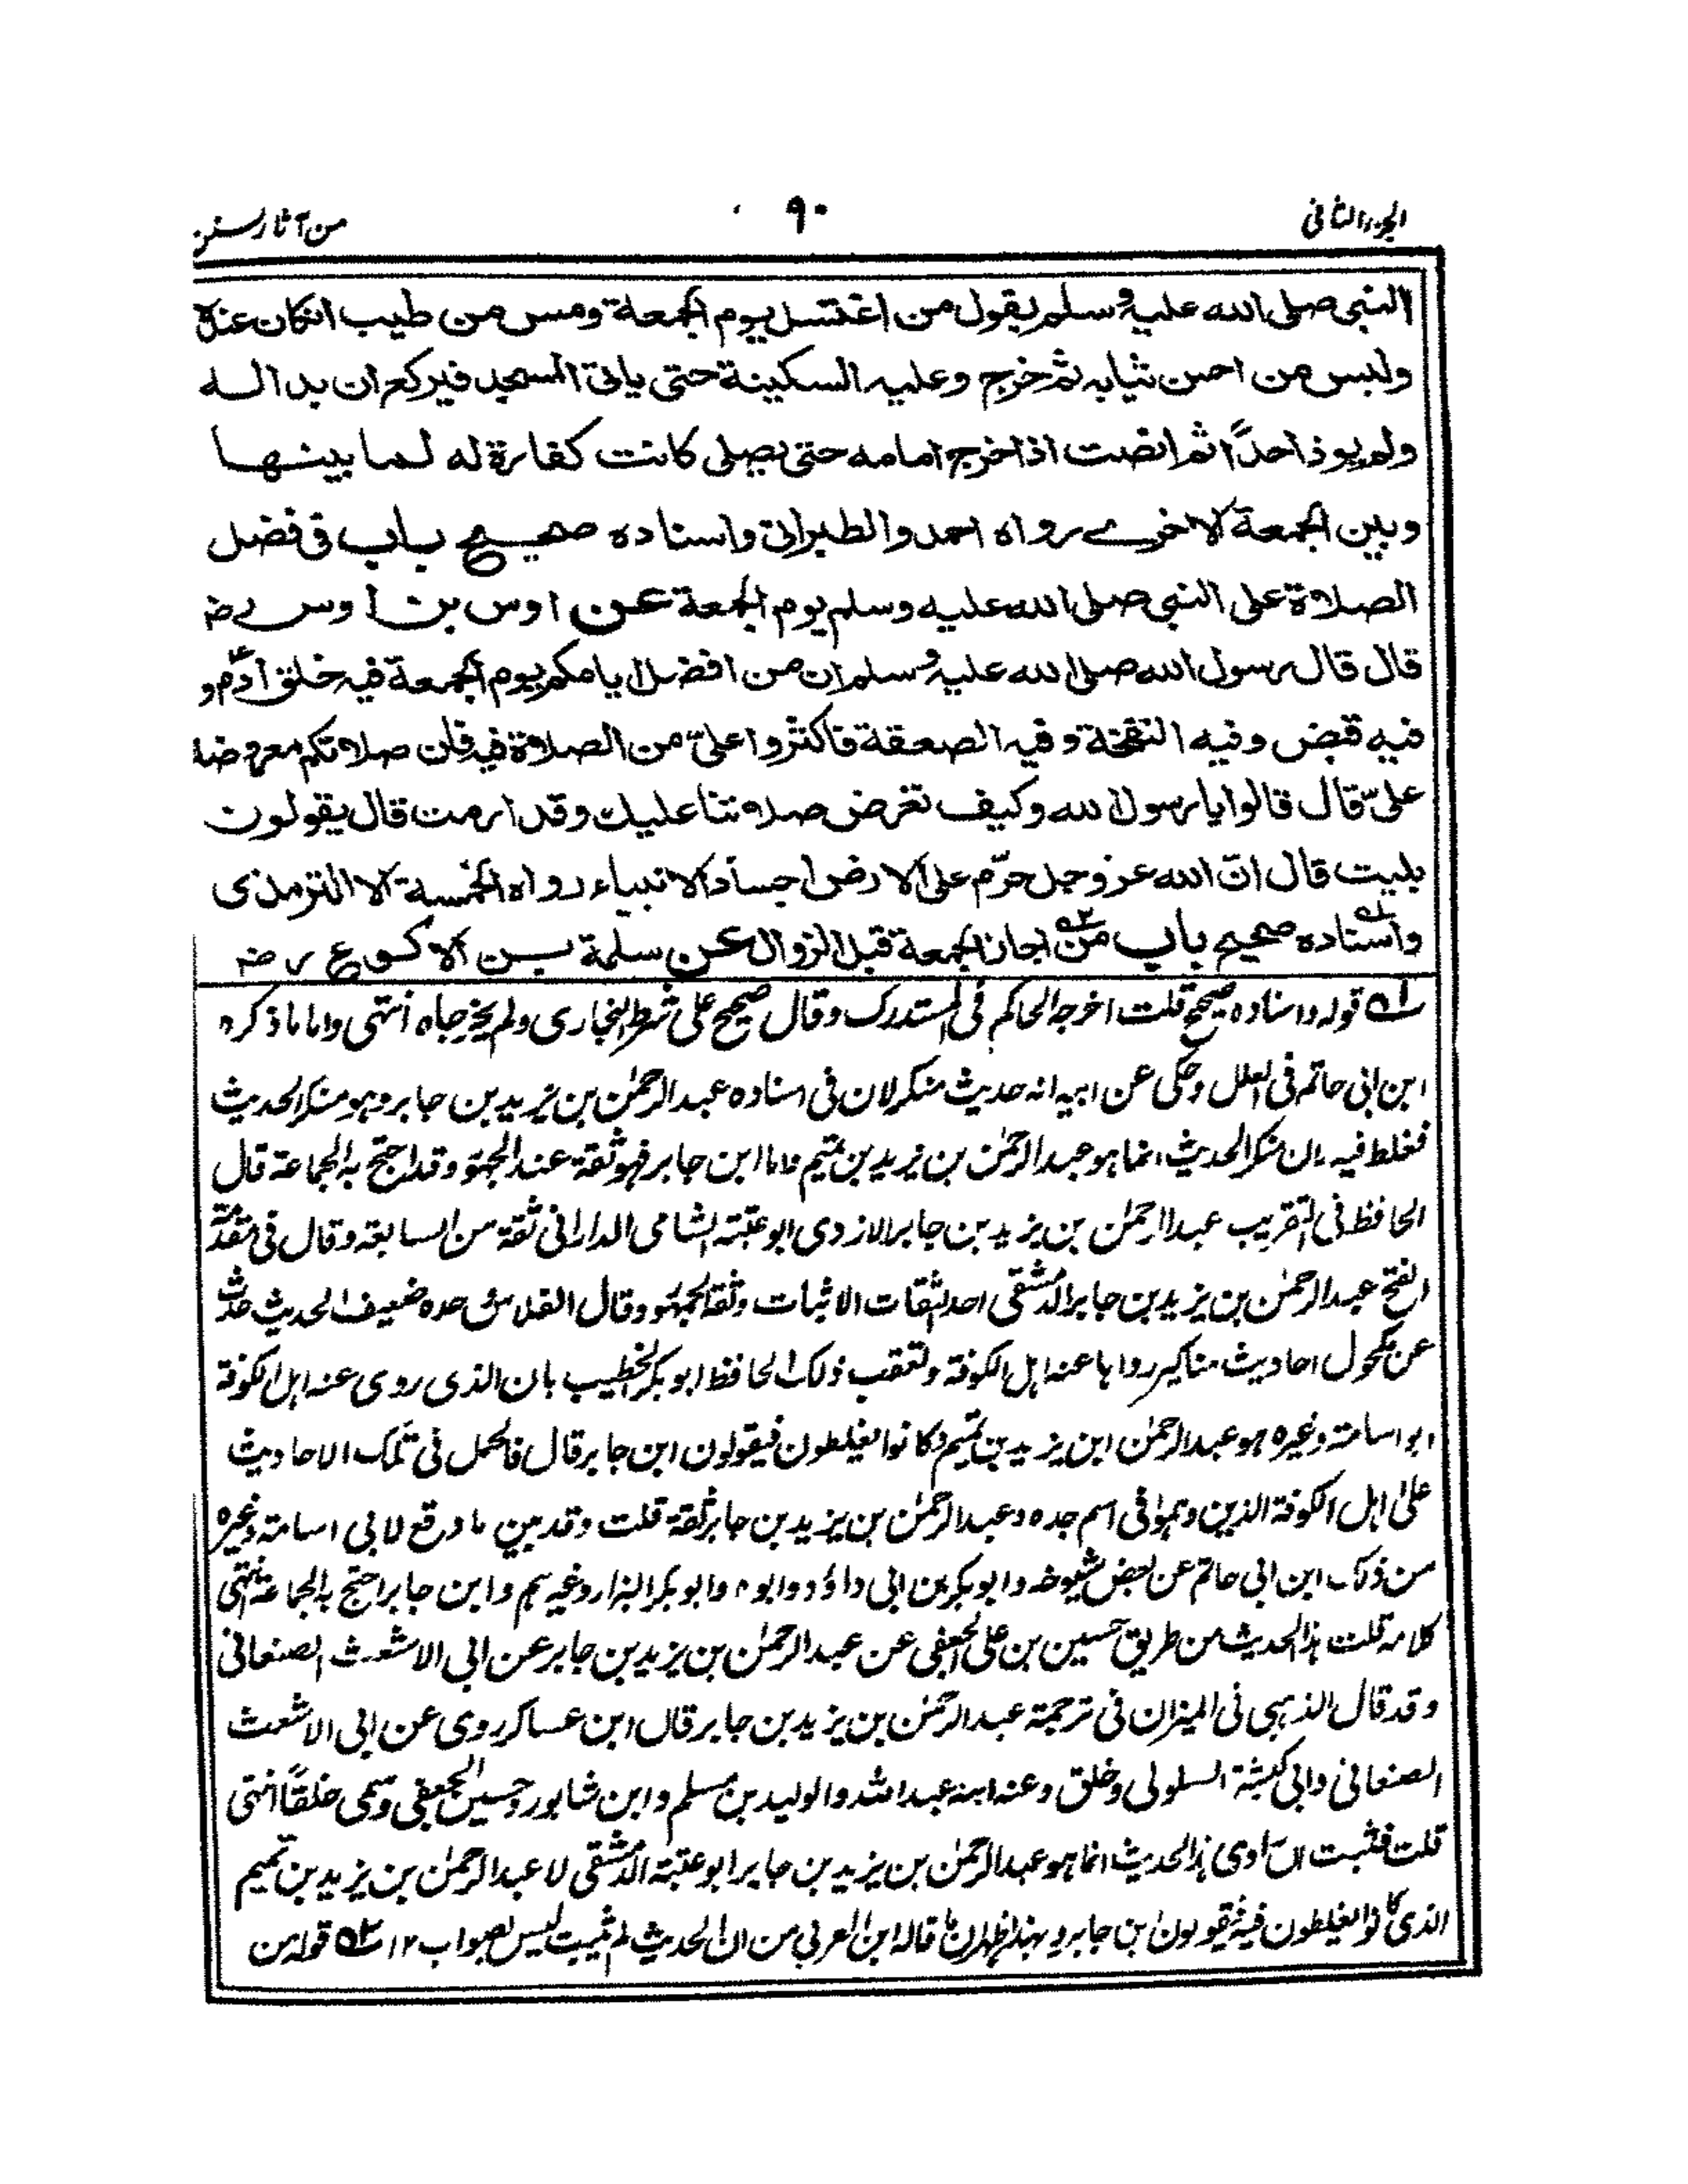 الجزء الثانی
۹۰
من آثار السنن
النبی صلی الله علیه وسلم یقول من اغتسل یوم الجمعة ومس من طیب انکان عنده
ولبس من احسن ثیابه ثم خرج وعلیه السکینة حتی یاتی المسجد فیرکع ان بدا له
ولم یوذ احدًا ثم انصت اذا خرج امامه حتی یصلی کانت کفارة له لما بینها
وبین الجمعة الاخرے رواه احمد والطبرانی واسناده صحیح باب فی فضل
الصلاة علی النبی صلی الله علیه وسلم یوم الجمعة عن اوس بن اوس رضـ
قال قال رسول الله صلی الله علیه وسلم ان من افضل ایامکم یوم الجمعة فیه خلق اٰدم و
فیه قبض وفیه النفخة وفیه الصعقة فاکثروا علیّ من الصلاة فیه فان صلاتکم معروضة
علیّ قال قالوا یا رسول الله وکیف تعرض صلاتنا علیك وقد ارمت قال یقولون
بلیت قال انّ الله عز وجل حرّم علی الارض اجساد الانبیاء رواه الخمسة الا الترمذی
واسناده صحیح باب من اجاز الجمعة قبل الزوال عن سلمة بن الاکوع رضـ
؂۱ قوله واسناده صحیح قلت اخرجه الحاکم فی المستدرک وقال صحیح علی شرط البخاری ولم یخرجاه انتهی واما ما ذکره
ابن ابی حاتم فی العلل وحکی عن ابیه انه حدیث منکر لان فی اسناده عبد الرحمٰن بن یزید بن جابر وهو منکر الحدیث
فغلط فیه لان منکر الحدیث انما هو عبد الرحمٰن بن یزید بن تمیم واما ابن جابر فهو ثقة عند الجمهور وقد احتج به الجماعة قال
الحافظ فی التقریب عبد الرحمٰن بن یزید بن جابر الازدی ابو عتبة الشامی الدارانی ثقة من السابعة وقال فی مقدمة
الفتح عبد الرحمٰن بن یزید بن جابر الدمشقی احد الثقات الاثبات وثقه الجمهور وقال الفلاس وحده ضعیف الحدیث حدث
عن مکحول احادیث مناکیر رواها عنه اهل الکوفة وتعقب ذلک الحافظ ابو بکر الخطیب بان الذی روی عنه اهل الکوفة
ابو اسامة وغیره هو عبد الرحمٰن ابن یزید بن تمیم وکانوا یغلطون فیقولون ابن جابر قال فالحمل فی تلک الاحادیث
علیٰ اهل الکوفة الذین وهموا فی اسم جده وعبد الرحمٰن بن یزید بن جابر ثقة قلت وقد بین ما وقع لابی اسامة وغیره
من ذلک ابن ابی حاتم عن بعض شیوخه وابو بکر بن ابی داؤد وابوه وابو بکر البزار وغیرهم وابن جابر احتج به الجماعة انتهی
کلامه قلت هذا الحدیث من طریق حسین بن علی الجعفی عن عبد الرحمٰن بن یزید بن جابر عن ابی الاشعث الصنعانی
وقد قال الذهبی فی المیزان فی ترجمة عبد الرحمٰن بن یزید بن جابر قال ابن عساکر روی عن ابی الاشعث
الصنعانی وابی کبشة السلولی وخلق وعنه ابنه عبد الله والولید بن مسلم وابن شابور وحسین الجعفی وسمی خلقًا انتهی
قلت فثبت ان راوی هذا الحدیث انما هو عبد الرحمٰن بن یزید بن جابر ابو عتبة الدمشقی لا عبد الرحمٰن بن یزید بن تمیم
الذی کانوا یغلطون فیه فیقولون ابن جابر وبهذا ظهر ان ما قاله ابن العربی من ان الحدیث لم یثبت لیس بصواب ۱۲ ؂۲ قوله من